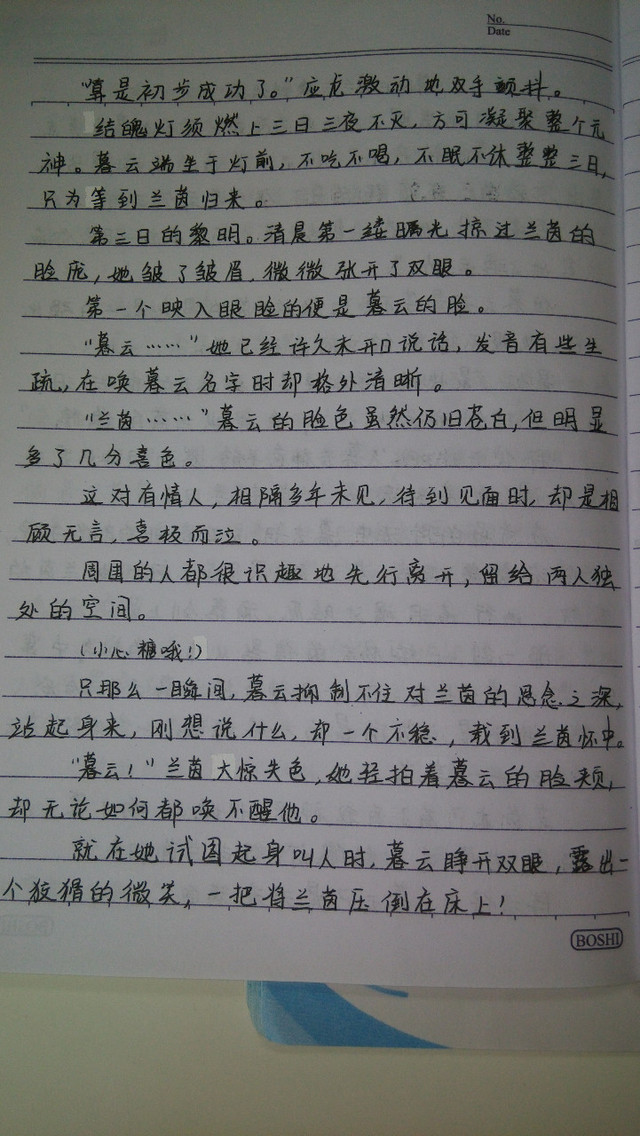 No.
Date
“算是初步成功了。”应龙激动地双手颤抖。
结魄灯须燃上三日三夜不灭，方可凝聚整个元
神。暮云端坐于灯前，不吃不喝，不眠不休整整三日，
只为等到兰茵归来。
第三日的黎明。清晨第一缕曙光掠过兰茵的
脸庞，她皱了皱眉，微微张开了双眼。
第一个映入眼睑的便是暮云的脸。
“暮云……”她已经许久未开口说话，发音有些生
疏，在唤暮云名字时却格外清晰。
“兰茵……”暮云的脸色虽然仍旧苍白，但明显
多了几分喜色。
这对有情人，相隔多年未见，待到见面时，却是相
顾无言，喜极而泣。
周围的人都很识趣地先行离开，留给两人独
处的空间。
（小心糖哦！）
只那么一瞬间，暮云抑制不住对兰茵的思念之深，
站起身来，刚想说什么，却一个不稳，栽到兰茵怀中。
“暮云！”兰茵大惊失色，她轻拍着暮云的脸颊，
却无论如何都唤不醒他。
就在她试图起身叫人时，暮云睁开双眼，露出一
个狡猾的微笑，一把将兰茵压倒在床上！
BOSHI